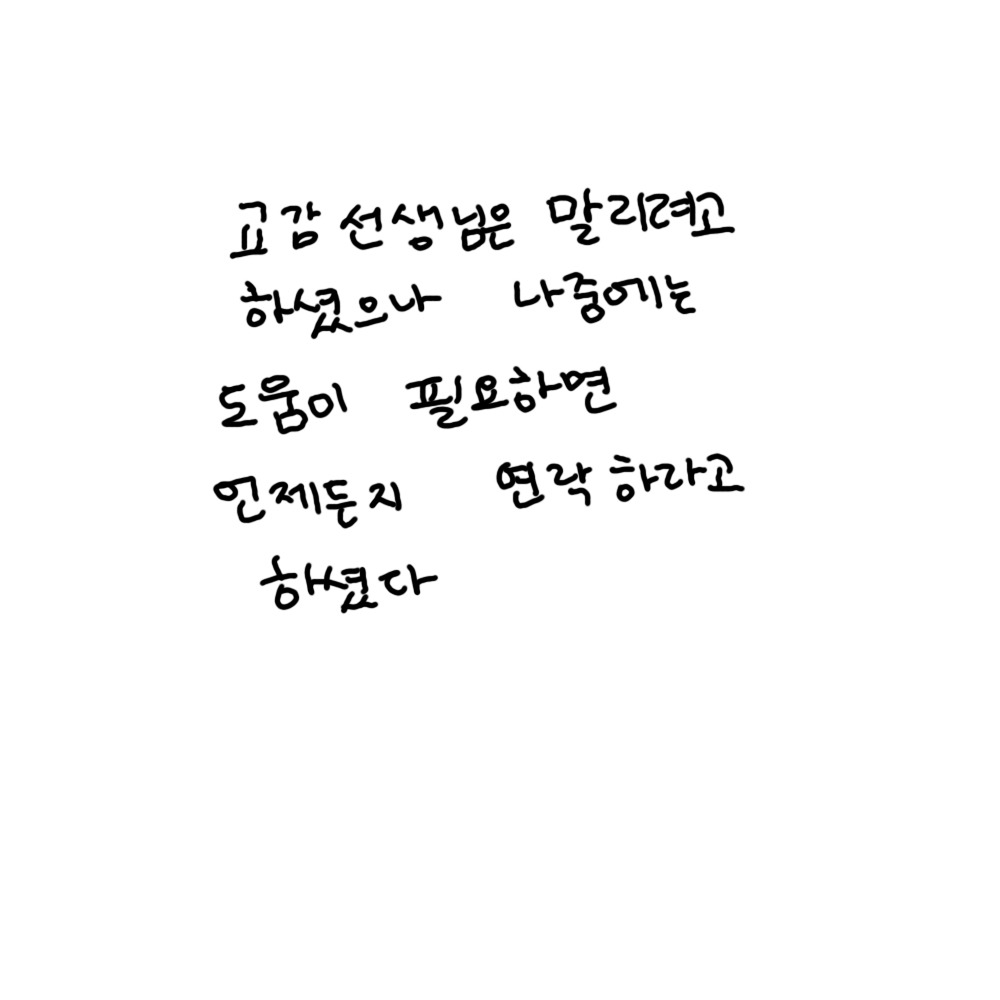 교감 선생님은 말리려고
하셨으나 나중에는
도움이 필요하면
언제든지 연락하라고
하셨다